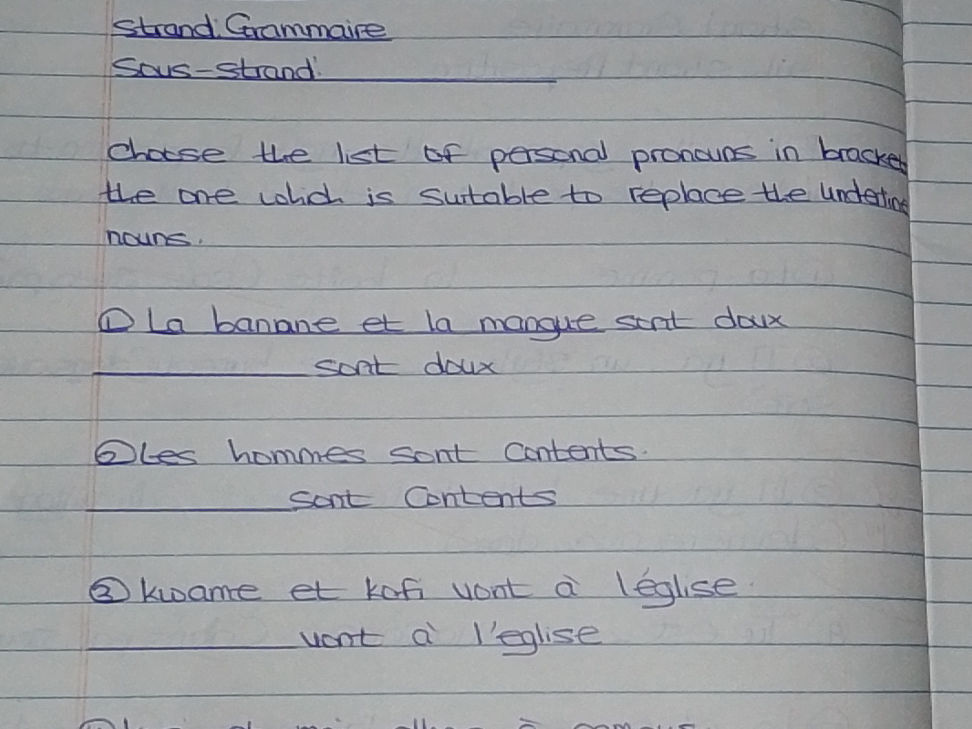 Strand: Grammaire
Sous-strand:
Choose the list of personal pronouns in bracket
the one which is suitable to replace the underline
nouns.
① La banane et la mangue sont doux
sont doux
② Les hommes sont contents.
sont contents
③ Kwame et Kofi vont à l'église.
vont à l'eglise